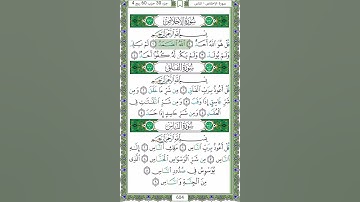 سُورَةُ الْإِخْلَاصِ
بِسْمِ اللَّهِ الرَّحْمَٰنِ الرَّحِيمِ
قُلْ هُوَ اللَّهُ أَحَدٌ ١ اللَّهُ الصَّمَدُ ٢ لَمْ يَلِدْ
وَلَمْ يُولَدْ ٣ وَلَمْ يَكُن لَّهُ كُفُوًا أَحَدٌ ٤
سُورَةُ الْفَلَقِ
بِسْمِ اللَّهِ الرَّحْمَٰنِ الرَّحِيمِ
قُلْ أَعُوذُ بِرَبِّ الْفَلَقِ ١ مِن شَرِّ مَا خَلَقَ ٢ وَمِن
شَرِّ غَاسِقٍ إِذَا وَقَبَ ٣ وَمِن شَرِّ النَّفَّاثَاتِ فِي
الْعُقَدِ ٤ وَمِن شَرِّ حَاسِدٍ إِذَا حَسَدَ ٥
سُورَةُ النَّاسِ
بِسْمِ اللَّهِ الرَّحْمَٰنِ الرَّحِيمِ
قُلْ أَعُوذُ بِرَبِّ النَّاسِ ١ مَلِكِ النَّاسِ ٢ إِلَٰهِ
النَّاسِ ٣ مِن شَرِّ الْوَسْوَاسِ الْخَنَّاسِ ٤ الَّذِي
يُوَسْوِسُ فِي صُدُورِ النَّاسِ ٥
مِنَ الْجِنَّةِ وَالنَّاسِ ٦
604